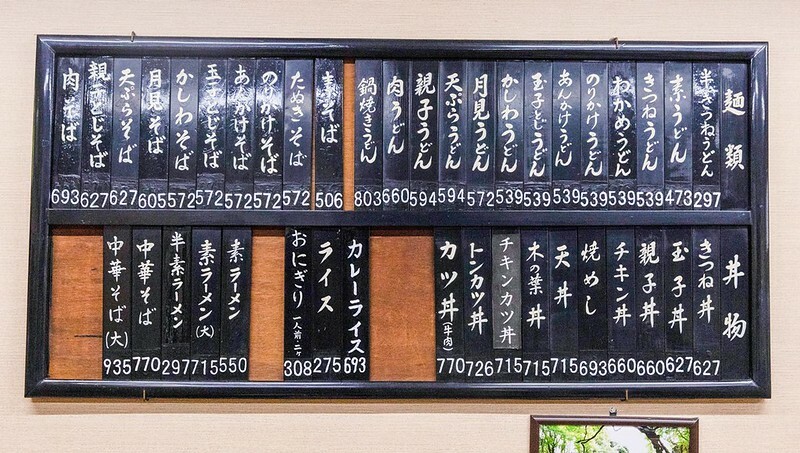 麺類
半きつねうどん 297
素うどん 473
きつねうどん 539
わかめうどん 539
のりかけうどん 539
あんかけうどん 539
玉子とじうどん 539
かしわうどん 539
月見うどん 572
天ぷらうどん 594
親子うどん 594
肉うどん 660
鍋焼きうどん 803
素そば 506
たぬきそば 572
のりかけそば 572
あんかけそば 572
玉子とじそば 572
かしわそば 572
月見そば 605
天ぷらそば 627
親子とじそば 627
肉そば 693
丼物
きつね丼 627
玉子丼 627
親子丼 660
チキン丼 660
焼めし 693
天丼 715
木の葉丼 715
チキンカツ丼 715
トンカツ丼 726
カツ丼(牛肉) 770
カレーライス 693
ライス 275
おにぎり 一人前・二ケ 308
素ラーメン 550
素ラーメン(大) 715
半素ラーメン 297
中華そば 770
中華そば(大) 935